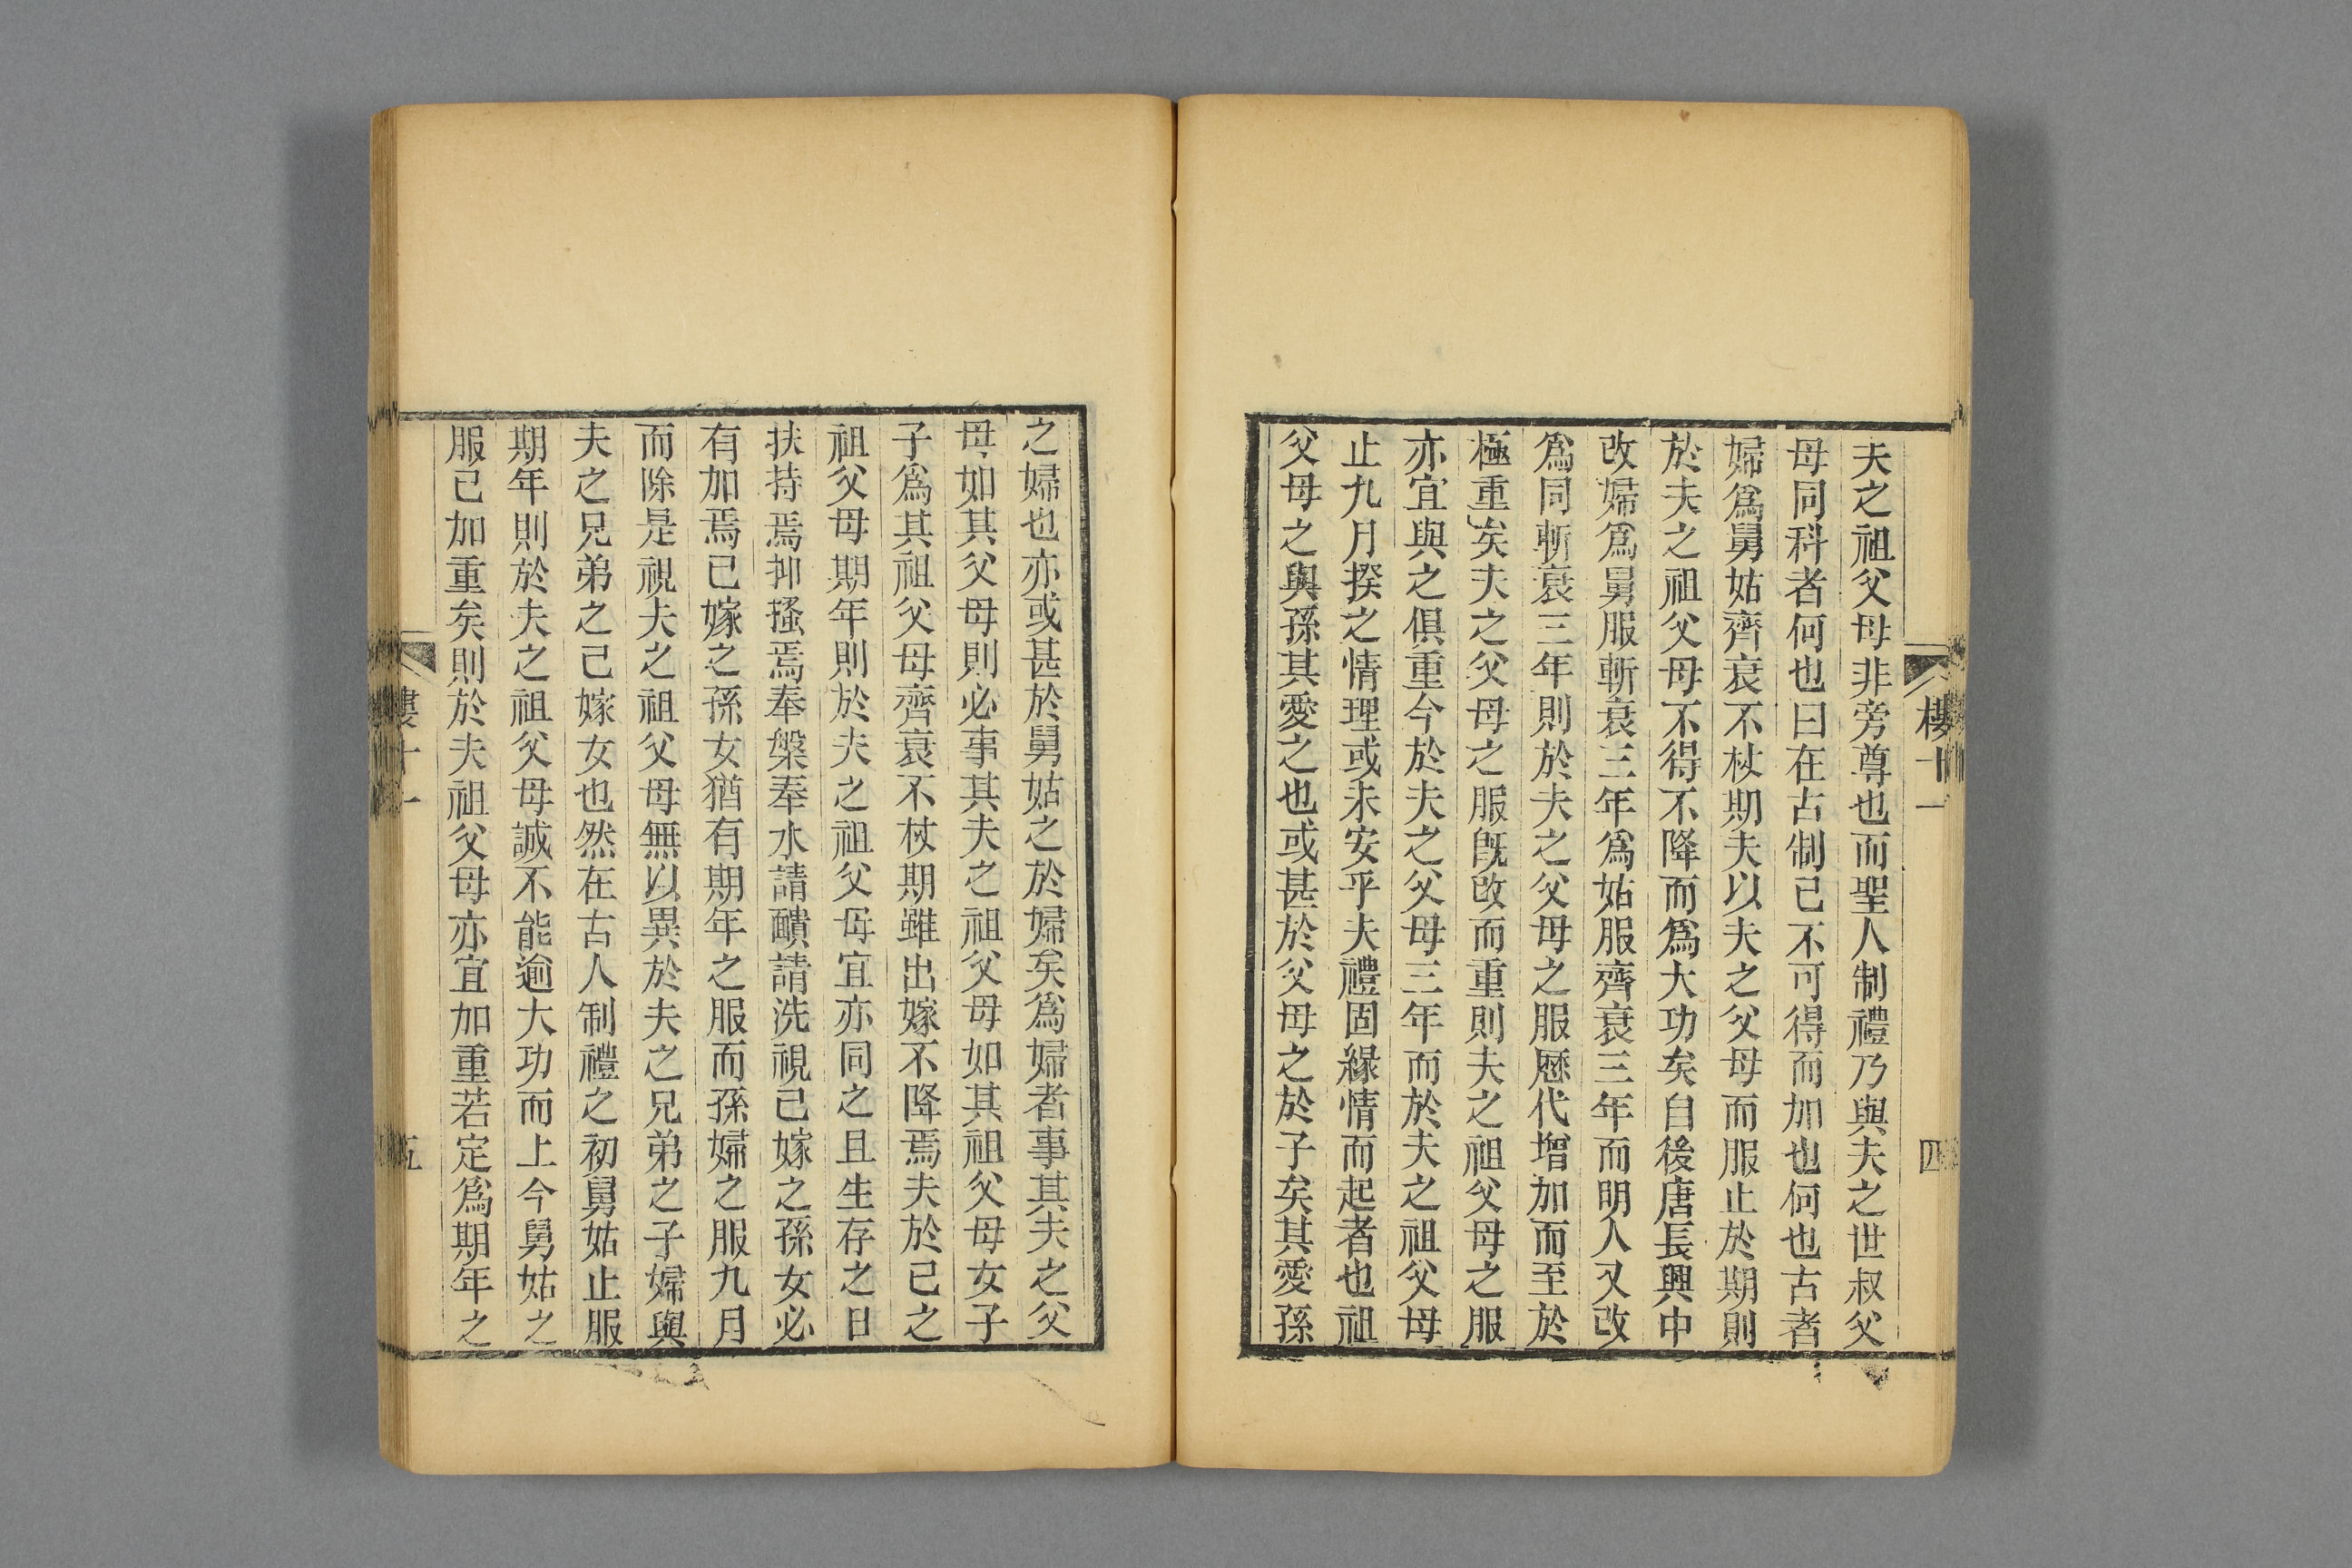 樓十一
四
夫之祖父母非旁尊也而聖人制禮乃與夫之世叔父
母同科者何也曰在古制已不可得而加也何也古者
婦爲舅姑齊衰不杖期夫以夫之父母而服止於期則
於夫之祖父母不得不降而爲大功矣自後唐長興中
改婦爲舅服斬衰三年爲姑服齊衰三年而明人又改
爲同斬衰三年則於夫之父母之服歷代增加而至於
極重矣夫之父母之服旣改而重則夫之祖父母之服
亦宜與之俱重今於夫之父母三年而於夫之祖父母
止九月揆之情理或未安乎夫禮固緣情而起者也祖
父母之與孫其愛之也或甚於父母之於子矣其愛孫
之婦也亦或甚於舅姑之於婦矣爲婦者事其夫之父
母如其父母則必事其夫之祖父母如其祖父母女子
子爲其祖父母齊衰不杖期雖出嫁不降焉夫於已之
祖父母期年則於夫之祖父母宜亦同之且生存之日
扶持焉抑搔焉奉槃奉水請靧請洗視已嫁之孫女必
有加焉已嫁之孫女猶有期年之服而孫婦之服九月
而除是視夫之祖父母無以異於夫之兄弟之子婦與
夫之兄弟之已嫁女也然在古人制禮之初舅姑止服
期年則於夫之祖父母誠不能逾大功而上今舅姑之
服已加重矣則於夫祖父母亦宜加重若定爲期年之
樓十一
五